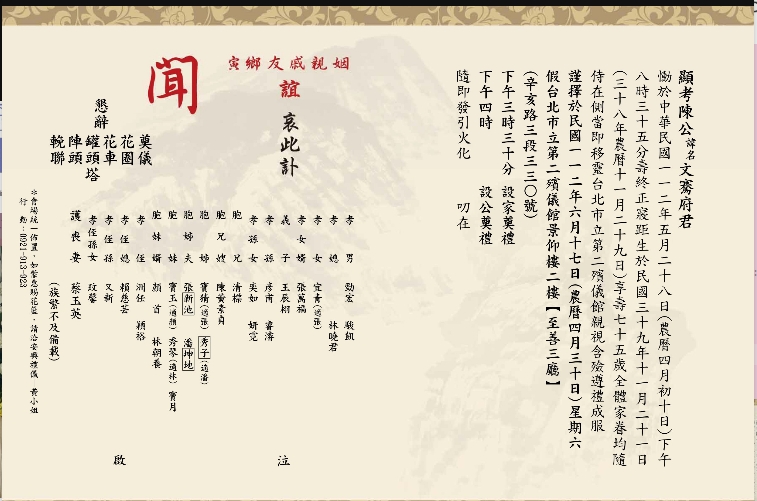 顯考陳公諱名文齋府君
慟於中華民國一一二年五月二十八日(農曆四月初十日)下午
八時三十五分壽終正寢距生於民國三十九年十一月二十一日
(三十八年農曆十一月二十九日)享壽七十五歲全體家眷均隨
侍在側當即移靈台北市立第二殯儀館親視含殮遵禮成服
謹擇於民國一一二年六月十七日(農曆四月三十日)星期六
假台北市立第二殯儀館景仰樓二樓【至善三廳】
(辛亥路三段三三〇號)
下午三時三十分 設家奠禮
下午四時 設公奠禮
隨即發引火化 叨在
姻親戚友鄉寅
誼
哀此訃
聞
孝男 勁宏 駿凱
孝媳 林曉君
孝女 定青(適張)
孝女婿 張萬福
義子 王辰桐
孝孫 彥甫 睿濤
孝孫女 奕如 妍霓
胞兄 清標
胞兄嫂 陳黃素貞
胞姊 寶猜(適張) 秀子(適潘)
胞姊夫 張新池 潘坤地
胞妹 寶玉(適顏) 秀琴(適林) 寶月
胞妹婿 顏首 林朝養
孝侄 渊任 穎裕
孝侄媳 賴應芸
孝侄孫 又新
孝侄孫女 玟馨
護喪妻 蔡玉英
(族繁不及備載)
泣
啟
懇辭
奠儀
花圈
花車
罐頭塔
陣頭
輓聯
※會場統一佈置,如蒙惠賜花籃,請洽安興禮儀 黃小姐
行動:0921-013-023